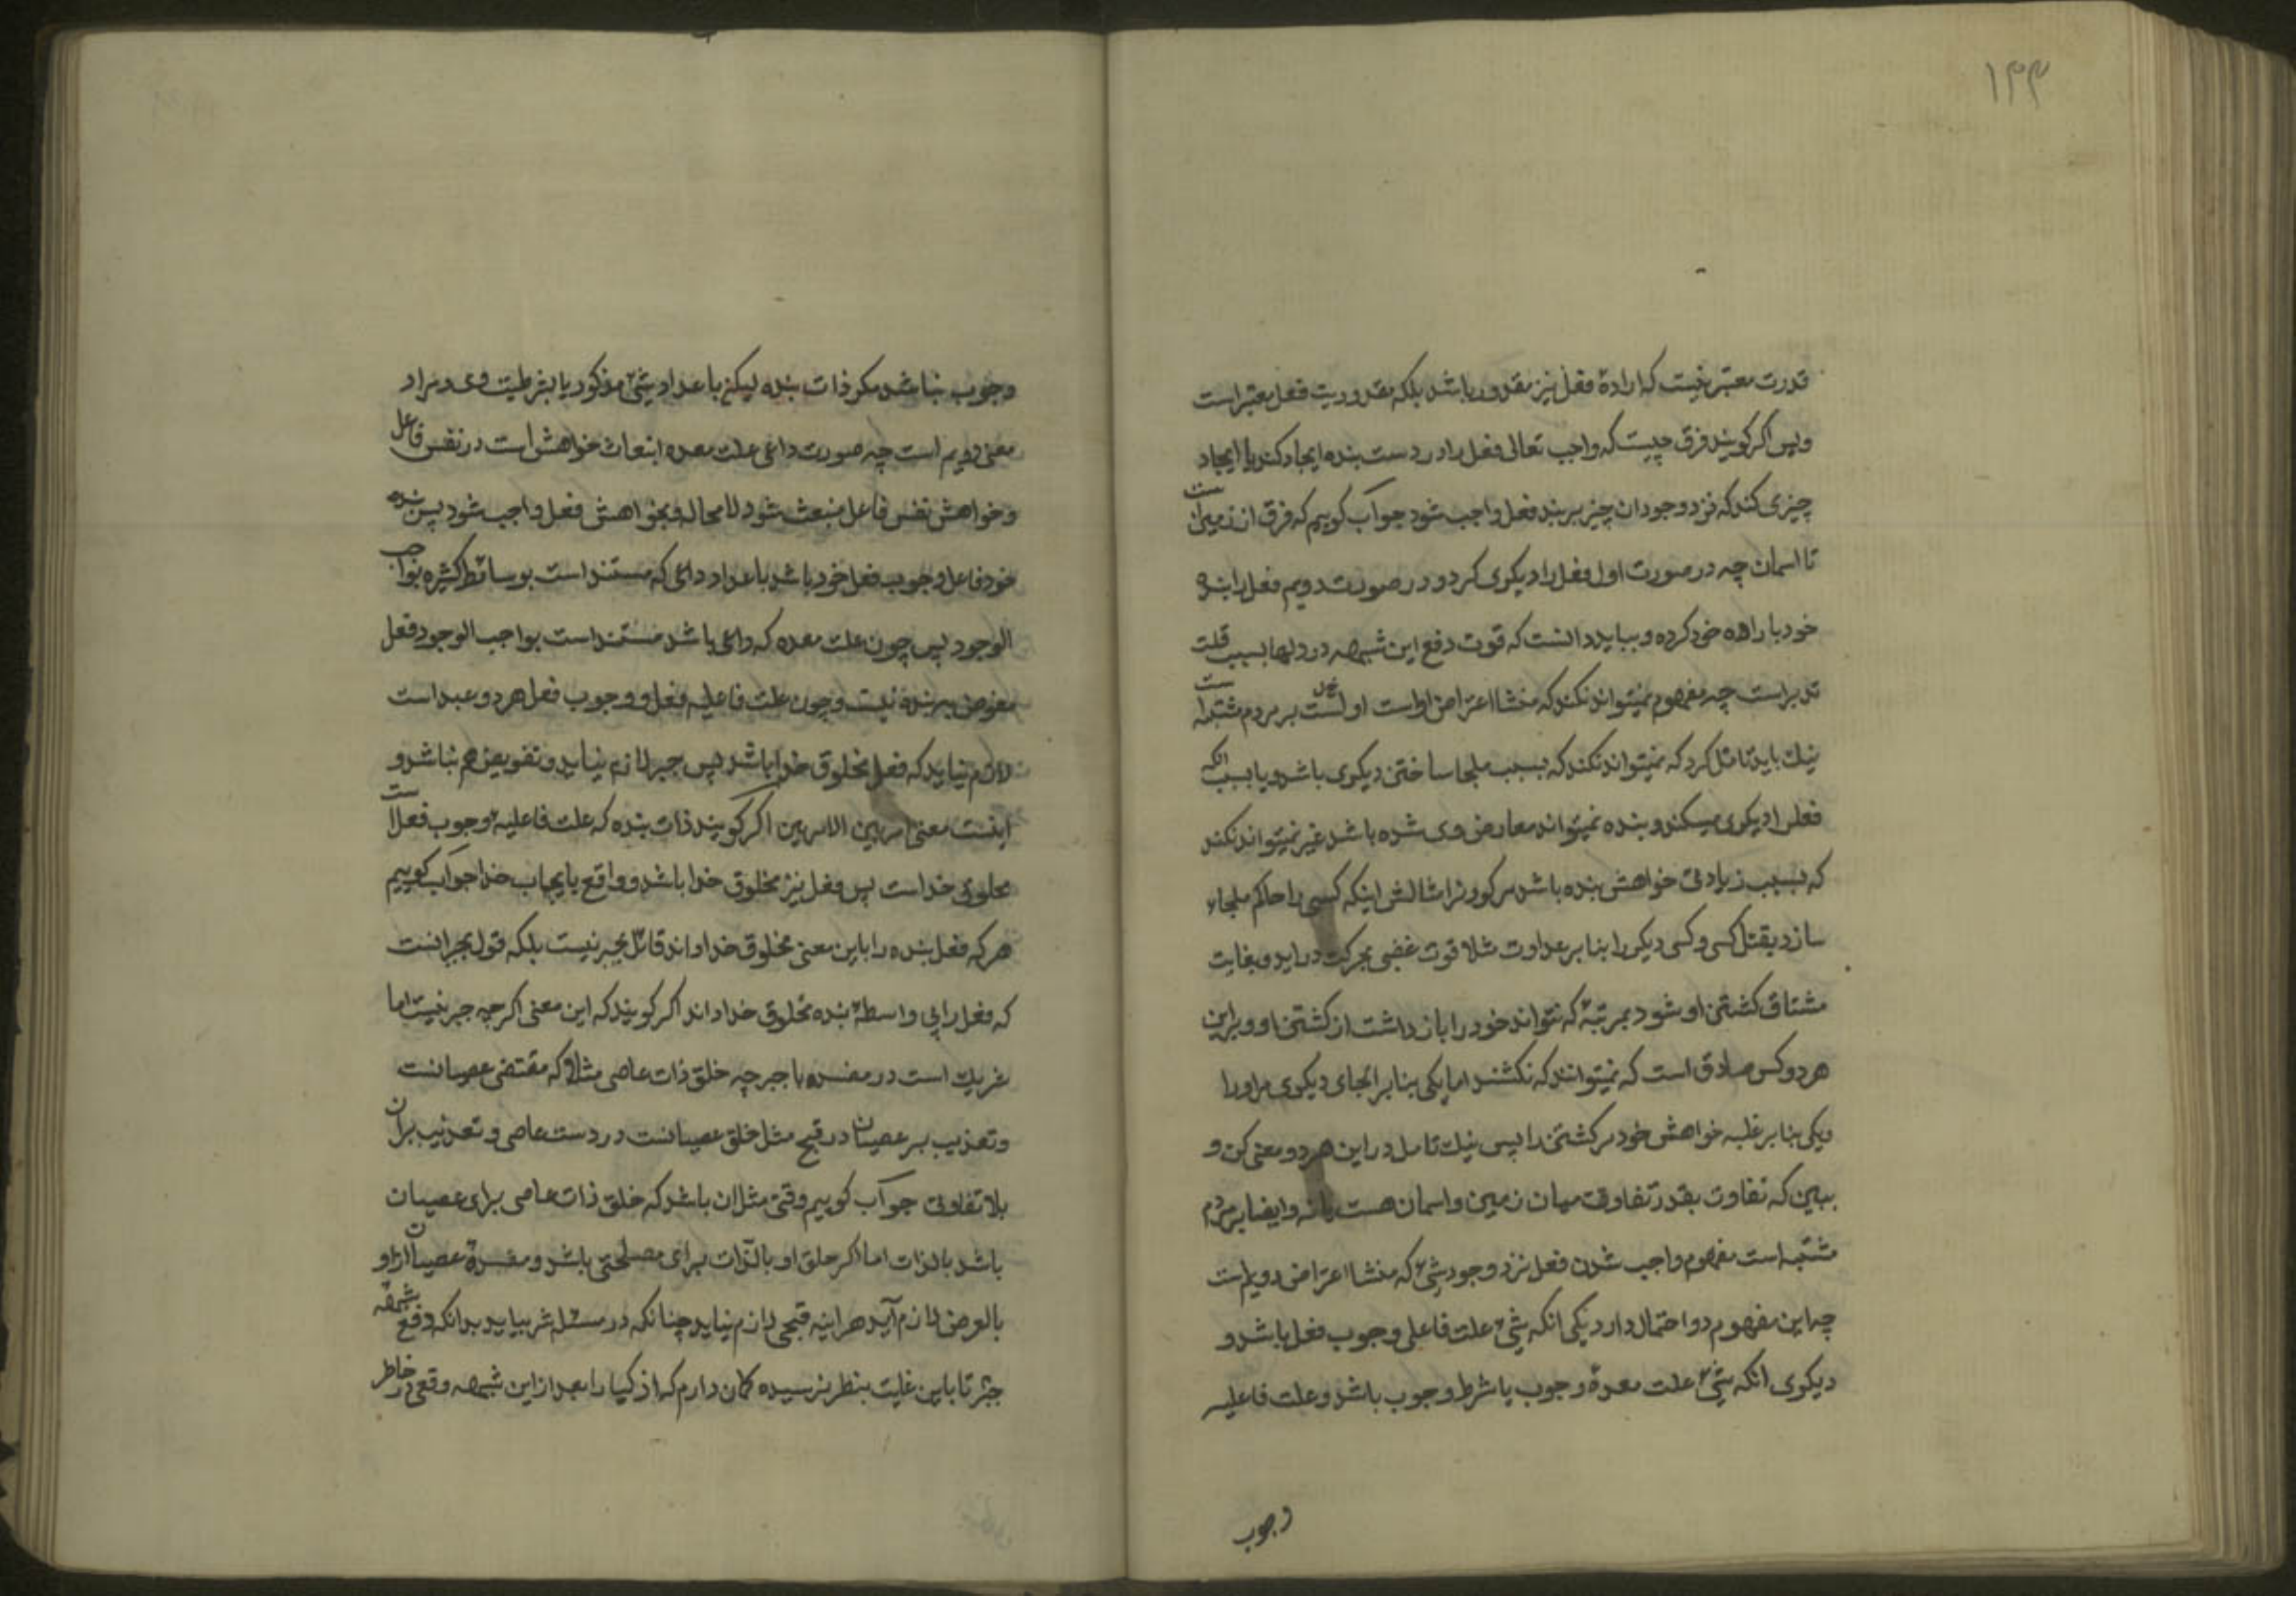 ۱۳۳
قدرت معتبر نیست که ارادهٔ فعل نیز مقدور باشد بلکه مقدوریت فعل معتبر است
وبس اکر کویند فرق چیست که واجب تعالی فعل را در دست بنده ایجاد کند یا ایجاد
چیزی کند که نزد وجود ان چیز بر بنده فعل واجب شود جواب کوییم که فرق از زمین است
تا اسمان چه در صورت اول فعل را دیکری کرد و در صورت دویم فعل را بنده
خود باراده خود کرده و بباید دانست که قوت دفع این شبهه در دلها بسبب قلت
تدبر است چه مفهوم نمیتواند نکند که منشا اعتراض اول است بر مردم مشتبه است
نیک باید تامل کرد که نمیتواند نکند که بسبب ملجا ساختن دیکری باشد و یا بسبب انکه
فعل را دیکری میکند و بنده نمیتواند معارض وی شده باشد غیر نمیتواند نکند
که بسبب زیادتی خواهش بنده باشد مر کردن را مثالش اینکه کسی را حاکم ملجاء
سازد بقتل کسی و کسی دیکر را بنا بر عداوت مثلا قوت غضبی بحرکت دراید و بغایت
مشتاق کشتن او شود بمرتبهٔ که نتواند خود را باز داشت از کشتن او و براین
هر دو کس صادق است که نمیتوانند که نکشند اما یکی بنا بر الجای دیکری مراورا
ویکی بنا بر غلبه خواهش خود مر کشتن را پس نیک تامل در این هر دو معنی کن و
ببین که تفاوت بقدر تفاوت میان زمین و اسمان هست یا نه و ایضا بر مردم
مشتبه است مفهوم واجب شدن فعل نزد وجود شیء که منشا اعتراض دویم است
چه این مفهوم دو احتمال دارد یکی انکه شیء علت فاعلی وجوب فعل باشد و
دیکری انکه شیء علت معدهٔ وجوب یا شرط وجوب باشد و علت فاعلیه
وجوب
وجوب نباشد مکر ذات بنده لیکن باعداد شیء مذکور یا بشرطیت وی و مراد
معنی دویم است چه صورت داعی علت معده انبعاث خواهش است در نفس فاعل
و خواهش نفس فاعل منبعث شود لا محاله و بخواهش فعل واجب شود پس بنده
خود فاعل وجوب فعل خود باشد باعداد داعی که مستند است بوسائط کثیره بواجب
الوجود پس چون علت معده که داعی باشد مستند است بواجب الوجود فعل
مفوض ببنده نیست و چون علت فاعلیه فعل و وجوب فعل هر دو عبد است
لازم نیاید که فعل مخلوق خدا باشد پس جبر لازم نیاید و تفویض هم نباشد و
اینست معنی امر بین الامرین اکر کویند ذات بنده که علت فاعلیه وجوب فعل است
مخلوق خداست پس فعل نیز مخلوق خدا باشد و واقع بایجاب خدا جواب کوییم
هر که فعل بنده را باین معنی مخلوق خدا داند قائل بجبر نیست بلکه قول بجبر انست
که فعل را بی واسطهٔ بنده مخلوق خدا داند اکر کویند که این معنی اکرچه جبر نیست اما
شریک است در مفسده با جبر چه خلق ذات عاصی مثلا که مقتضی عصیانست
و تعذیب بر عصیان در قبح مثل خلق عصیانست در دست عاصی و تعذیب بران
بلا تفاوت جواب کوییم وقتی مثل ان باشد که خلق ذات عاصی برای عصیان
باشد بالذات اما اکر خلق او بالذات برای مصلحتی باشد و مفسدهٔ عصیان ازو
بالعرض لازم آید هراینه قبحی لازم نیاید چنانکه در مسئله شر بیاید بدانکه دفع شبههٔ
جبر تا باین غایت بنظر نرسیده کمان دارم که اذکیا را بعد از این شبهه وقعی در خاطر